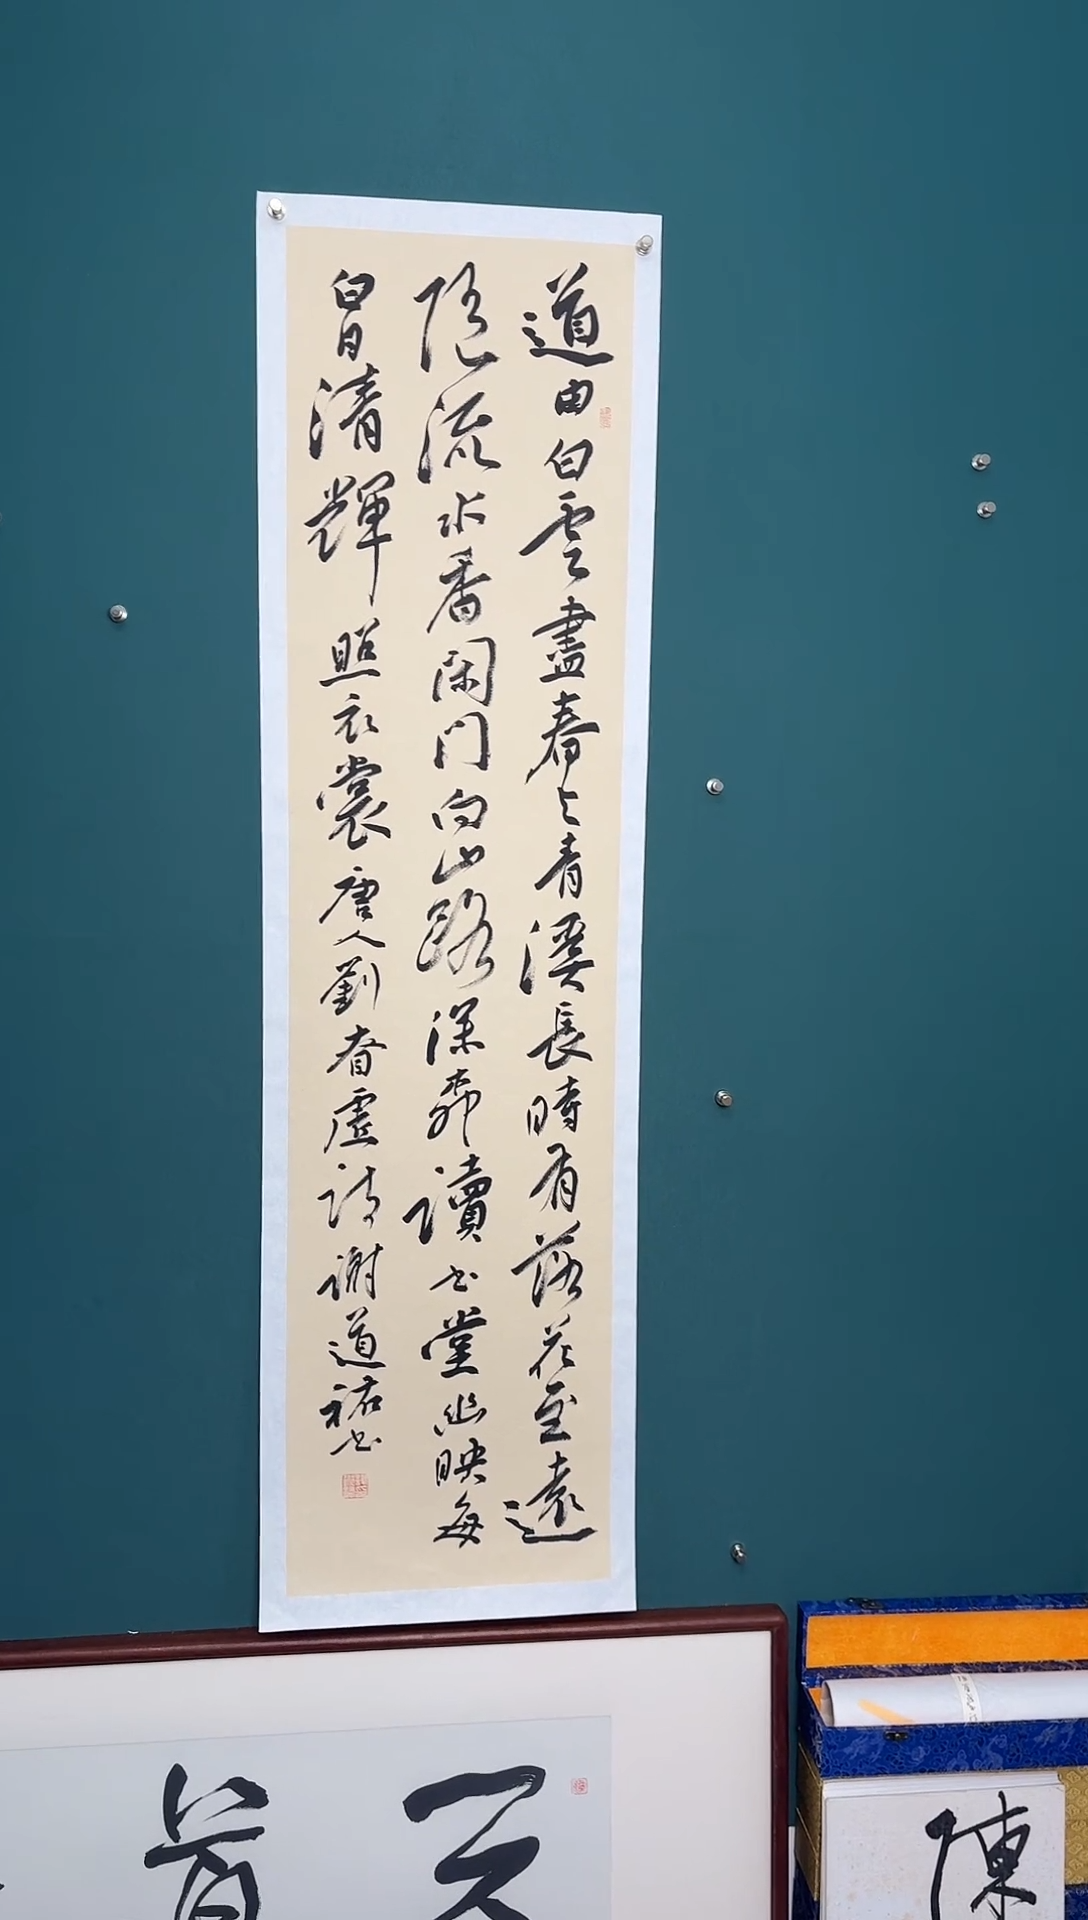 道由白雲盡春与青溪長時有落花至遠
隨流水香閑門向山路深柳讀書堂幽映每
白日清輝照衣裳唐人劉眘虛詩謝道祐書
陳